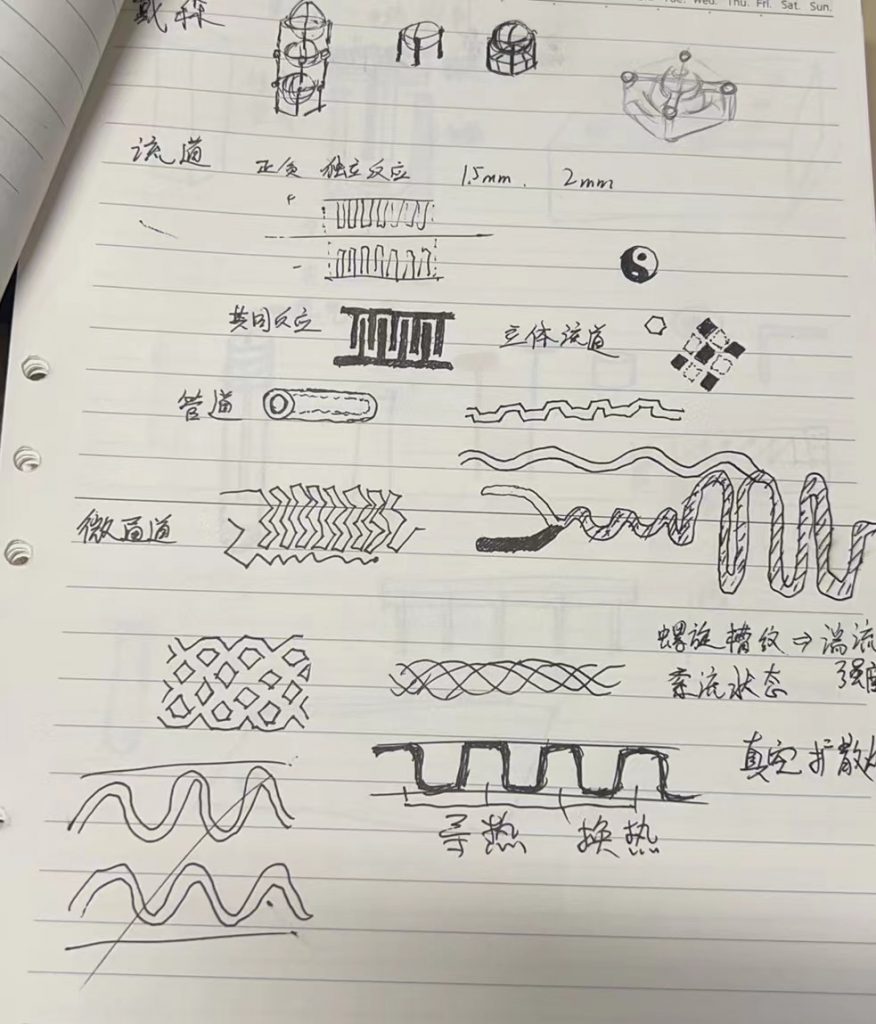 Wed. Thu. Fri. Sat. Sun.
戴森
流道 正负 独立反应 1.5mm. 2mm
共同反应
立体流道
管道
微通道
螺旋槽纹⇒湍流
紊流状态 强
真空扩散
导热 换热